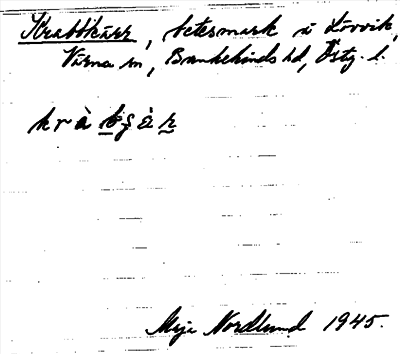 Krabbkärr, betesmark i Lövvik,
Värna sn, Bankekinds hd, Östg. l.
Maja Nordlund 1945.